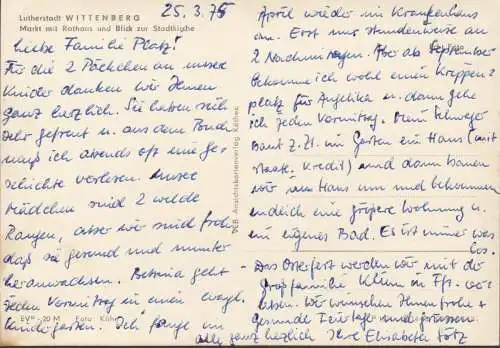 Lutherstadt WITTENBERG
Markt mit Rathaus und Blick zur Stadtkirche
25.3.75
Liebe Familie Platz!
Für die 2 Päckchen an unsre
Kinder danken wir Ihnen
ganz herzlich. Sie haben sich
sehr gefreut u. aus dem Buch
muß ich abends oft eine Ge-
schichte vorlesen. Unsre
Mädchen sind 2 wilde
Rangen, aber wir sind froh
daß sie gesund und munter
heranwachsen. Bettina geht
jeden Vormittag in einen evgl.
Kindergarten. Ich fange im
April wieder im Krankenhaus
an. Erst nur stundenweise an
2 Nachmittagen. Aber ab September
bekomme ich wohl einen Krippen-
platz für Angelika u. dann gehe
ich jeden Vormittag. Mein Schwager
baut z. Zt. im Garten ein Haus (mit
staatl. Kredit) und dann bauen
wir uns Haus um und bekommen
endlich eine größere Wohnung u.
ein eigenes Bad. Es ist immer was
los.
Das Osterfest werden wir mit der
Großfamilie
Wir wünschen Ihnen frohe +
gesunde Feiertage und grüssen
alle ganz herzlich Ihre Elisabeth Götz
PGB Ansichtskartenverlag Köthen
EVP -20 M Foto: